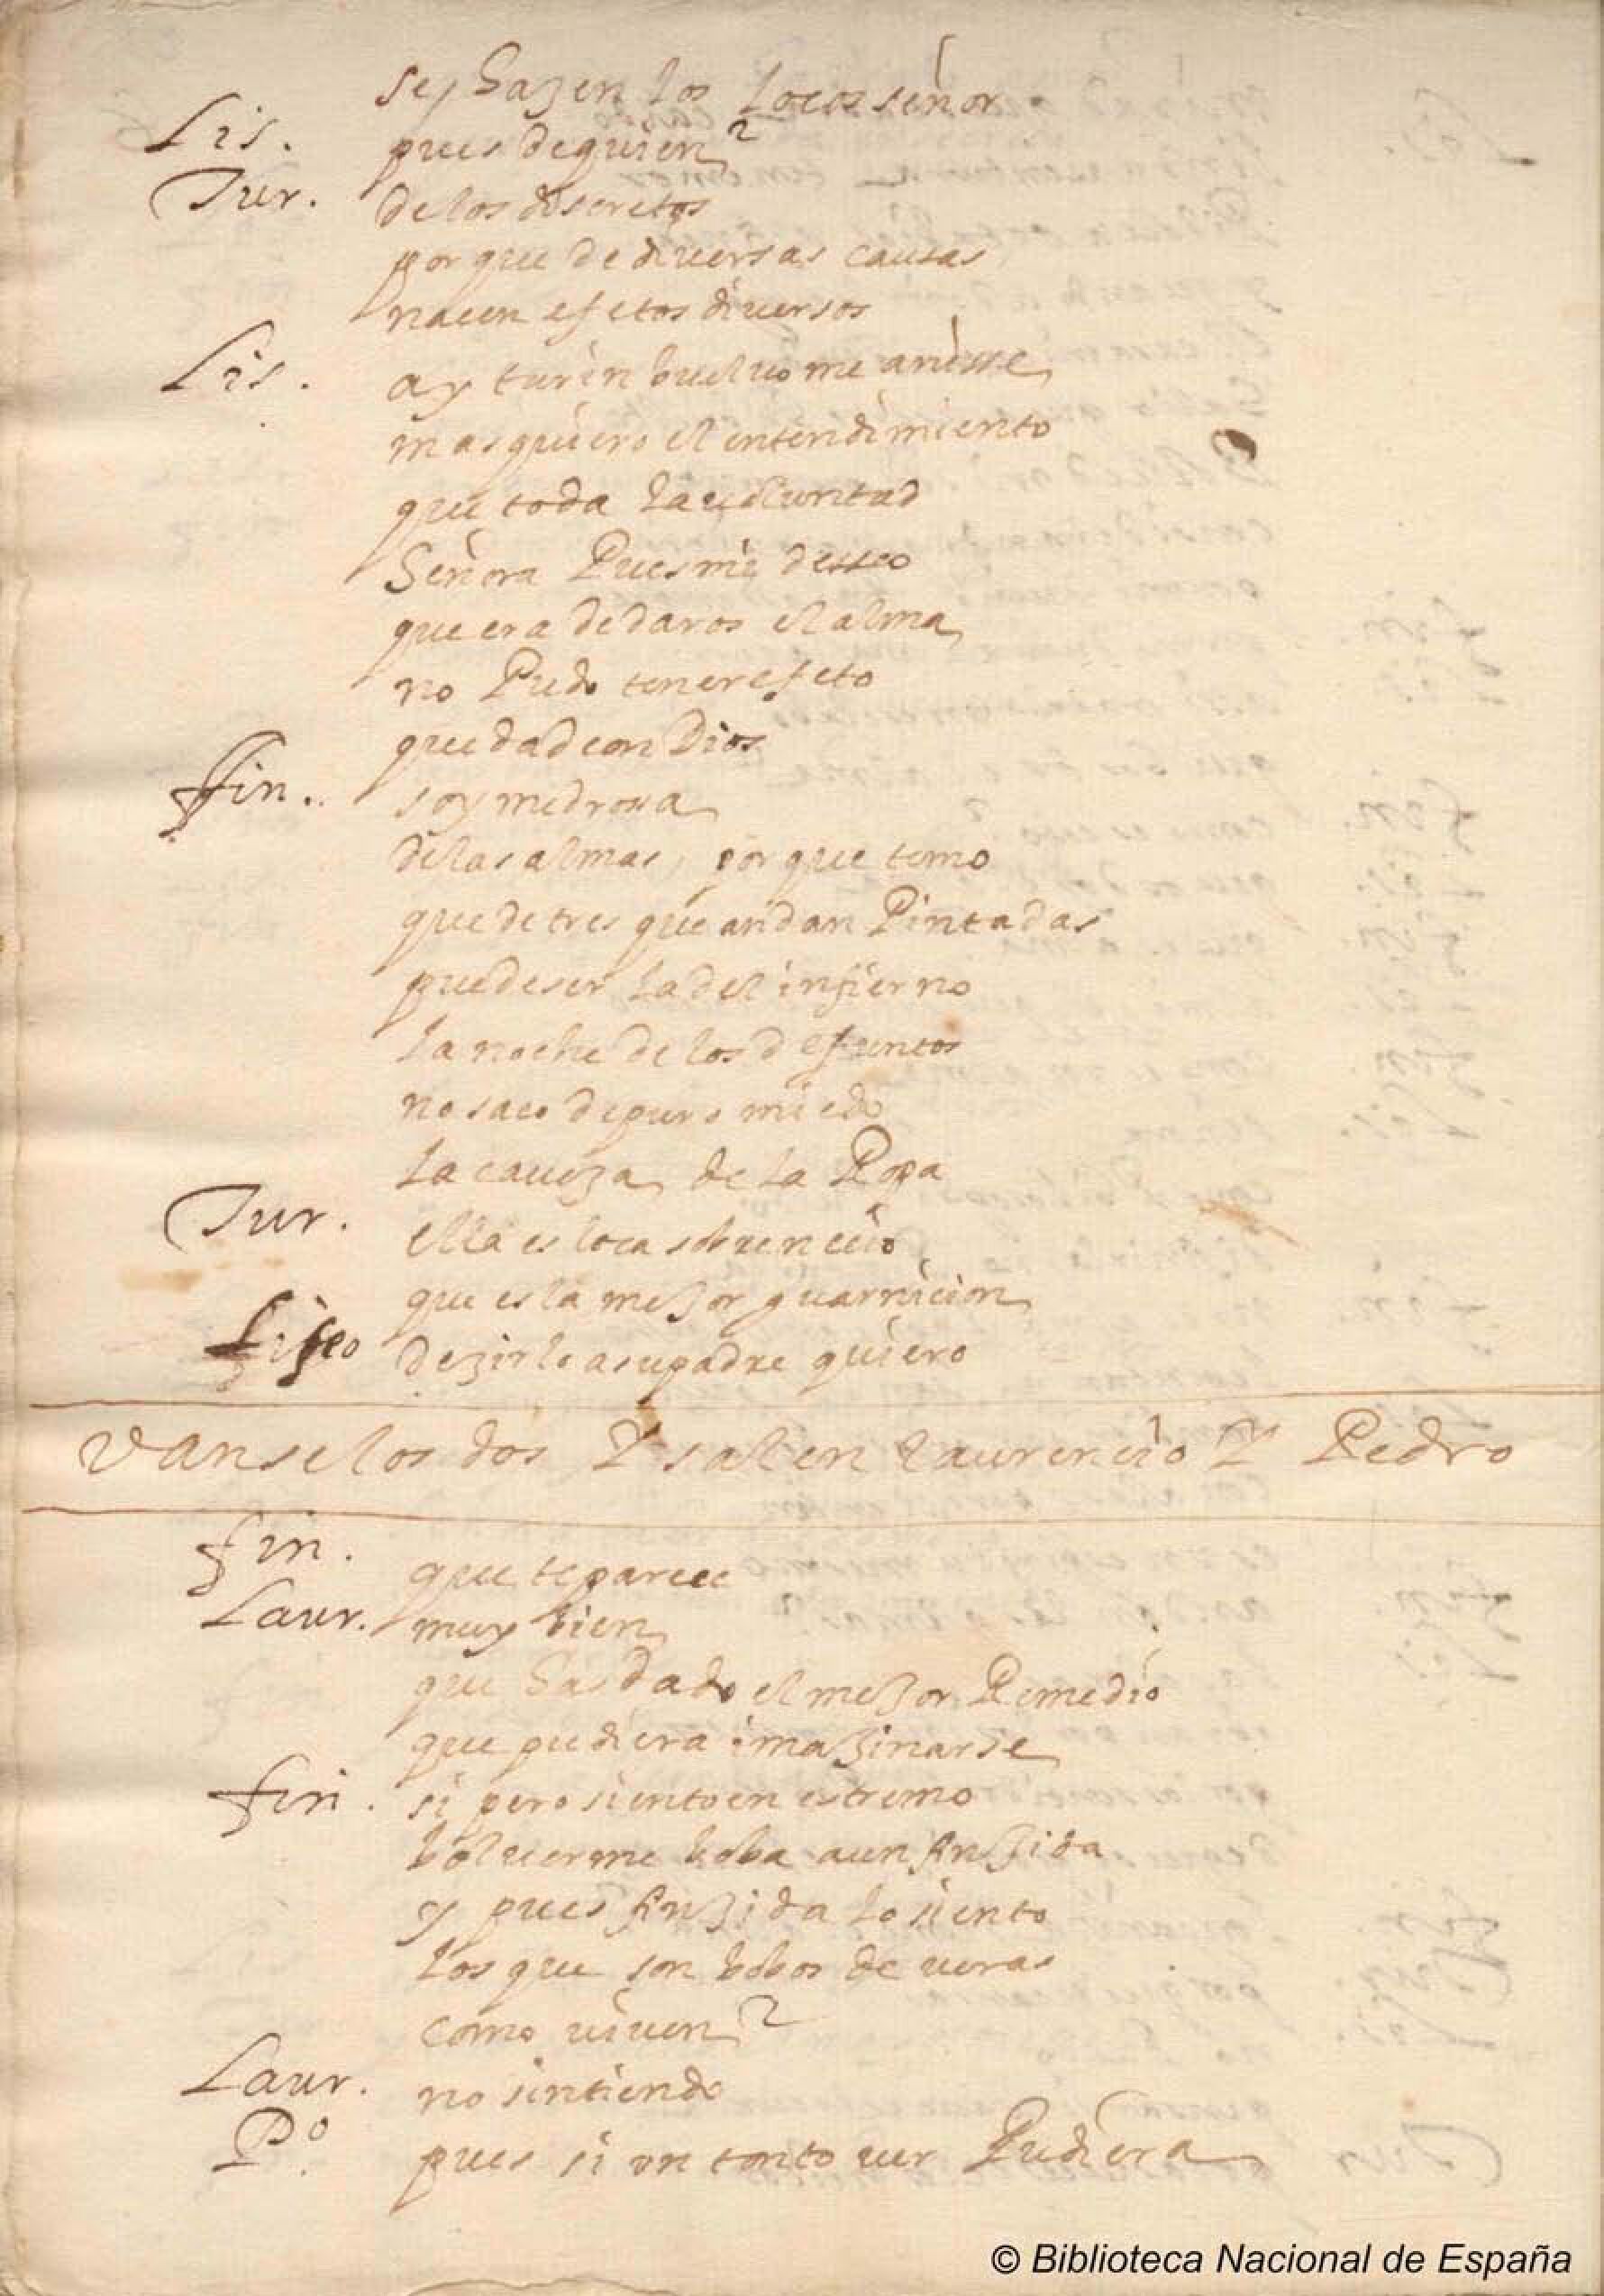 se hazen los locos señor
Lis. pues de quien?
Tur. de los discretos
por que de diuersas causas
nacen efetos diuersos
Lis. ay turin bueluome a nisse
mas quiero el entendimiento
que toda la uoluntad
Señora Pues mi desseo
que era de daros el alma
no Pudo tener efeto
quedad con Dios
fin. soy medrossa
de las almas, por que temo
que de tres que andan Pintadas
puede ser la del infierno
la noche de los defuntos
no saco de puro miedo
la caueza de la Ropa
Tur. ella es loca sobre necio
que es la mejor guarnicion
Liseo dezirlo a su padre quiero
Vanse los dos Y salen laurencio Y Pedro
fin. que te parece
Laur. muy bien
que has dado el mejor Remedio
que pudiera imajinarse
fin. si pero siento en estremo
boluerme boba aun finjida
y pues finjida lo siento
los que son bobos de ueras
como uiuen?
Laur. no sintiendo
Po. pues si un tonto uer Pudiera
© Biblioteca Nacional de España